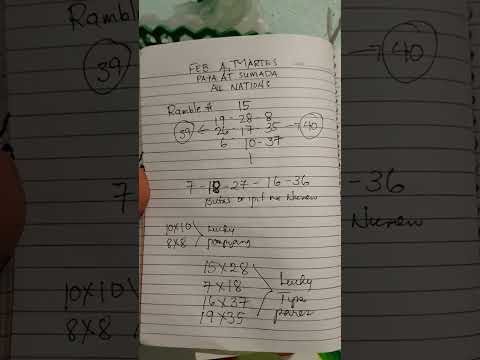 FEB 4, MARTES
PATA AT SUMADA
ALL NATIONS
Ramble # 15
19 - 28 - 8
39 ← 26 - 17 - 35 → 40
6 10 - 37
1
7 - 18 - 27 - 16 - 36
Butas or ipit na Numero
10X10 Lucky
8X8 pompyang
15X28
7X18 Lucky
16X37 Type
19X35 pares
39
→ 40
7
- 36
Numero
10X10
8X8